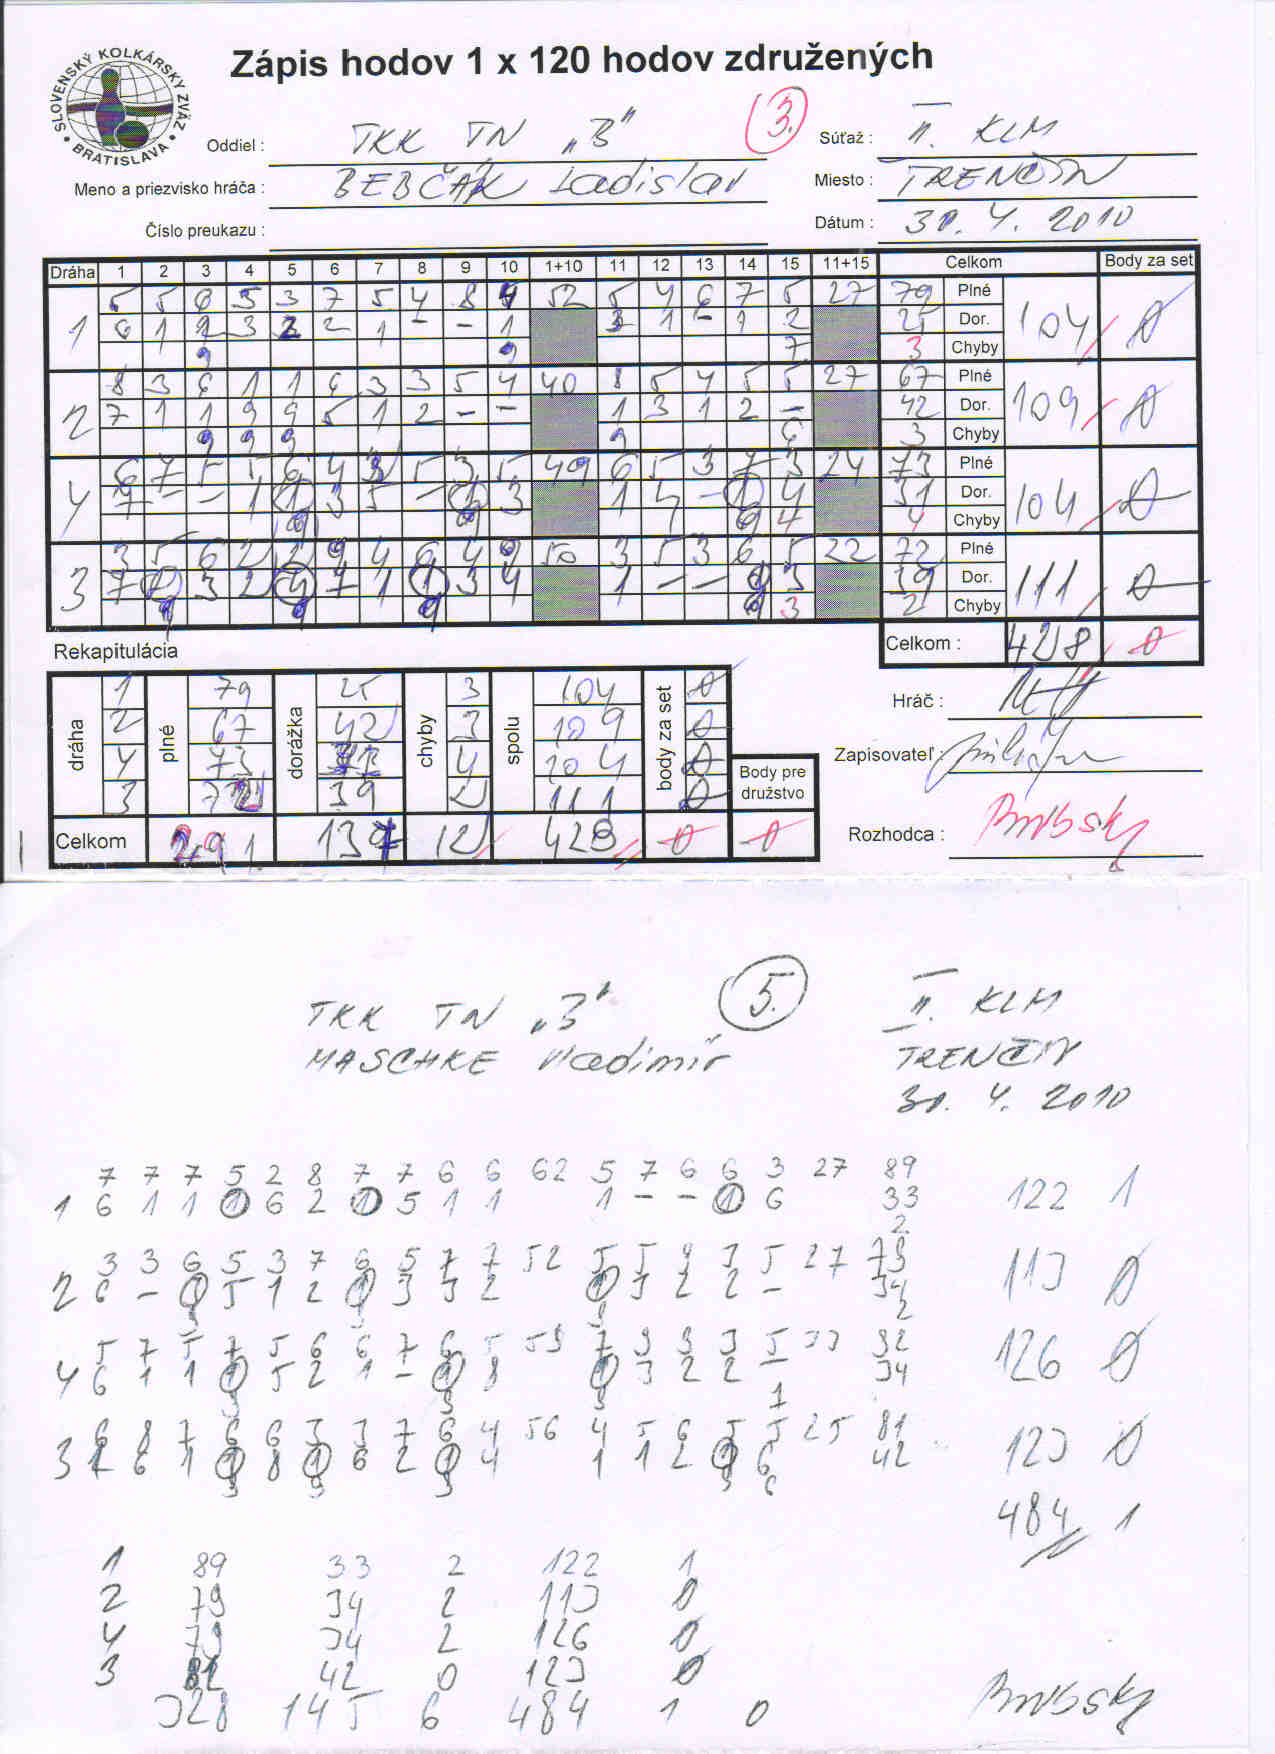 SLOVENSKÝ KOLKÁRSKY ZVÄZ • BRATISLAVA •
Zápis hodov 1 x 120 hodov združených
3.
Oddiel : TKK TN „B" Súťaž : II. KLM
Meno a priezvisko hráča : BEBČÁK Ladislav Miesto : TRENČÍN
Číslo preukazu : Dátum : 30. 4. 2010
Dráha 1 2 3 4 5 6 7 8 9 10 1+10 11 12 13 14 15 11+15 Celkom Body za set
1 5 5 6 5 3 7 5 4 8 4 52 5 4 6 7 5 27 79 Plné 104 0
6 1 2 3 2 2 1 - - 1 3 1 - 1 2 25 Dor.
9 9 7 3 Chyby
2 8 3 6 1 1 6 3 3 5 4 40 8 5 4 5 5 27 67 Plné 109 0
7 1 1 9 9 5 1 2 - - 1 3 1 2 - 42 Dor.
9 9 9 9 6 3 Chyby
4 6 7 5 5 6 4 3 5 3 5 49 6 5 3 7 3 24 73 Plné 104 0
7 - - 1 1 3 5 - 1 3 1 4 - 1 4 31 Dor.
9 9 9 4 4 Chyby
3 3 5 6 2 2 9 4 6 4 9 50 3 5 3 6 5 22 72 Plné 111 0
7 9 3 2 9 7 1 1 3 4 1 - - 9 3 39 Dor.
9 9 9 9 3 2 Chyby
Celkom : 428 0
Rekapitulácia
dráha plné dorážka chyby spolu body za set
1 79 25 3 104 0
2 67 42 3 109 0
4 73 31 4 104 0
3 72 39 2 111 0
Body pre družstvo
Celkom 291 137 12 428 0 0
Hráč :
Zapisovateľ :
Rozhodca :
5.
TKK TN „B" II. KLM
MASCHKE Vladimír TRENČÍN
30. 4. 2010
7 7 7 5 2 8 7 7 6 6 62 5 7 6 6 3 27 89
1 6 1 1 1 6 2 1 5 1 1 1 - - 1 6 33 122 1
2
3 3 6 5 3 7 6 5 7 7 52 5 5 9 3 5 27 79
2 6 - 9 5 1 2 1 3 3 2 1 3 2 2 - 34 113 0
2
5 7 5 7 5 6 6 7 6 5 59 7 9 9 3 5 33 92
4 6 1 1 1 5 2 1 - 1 8 1 3 2 2 - 34 126 0
1
6 8 7 6 6 3 3 7 6 4 56 4 5 6 5 5 25 81
3 1 6 1 1 8 1 6 2 1 4 1 1 2 1 6 42 123 0
6
484 1
1 89 33 2 122 1
2 79 34 2 113 0
4 34 2 126 0
3 42 0 123 0
328 145 6 484 1 0